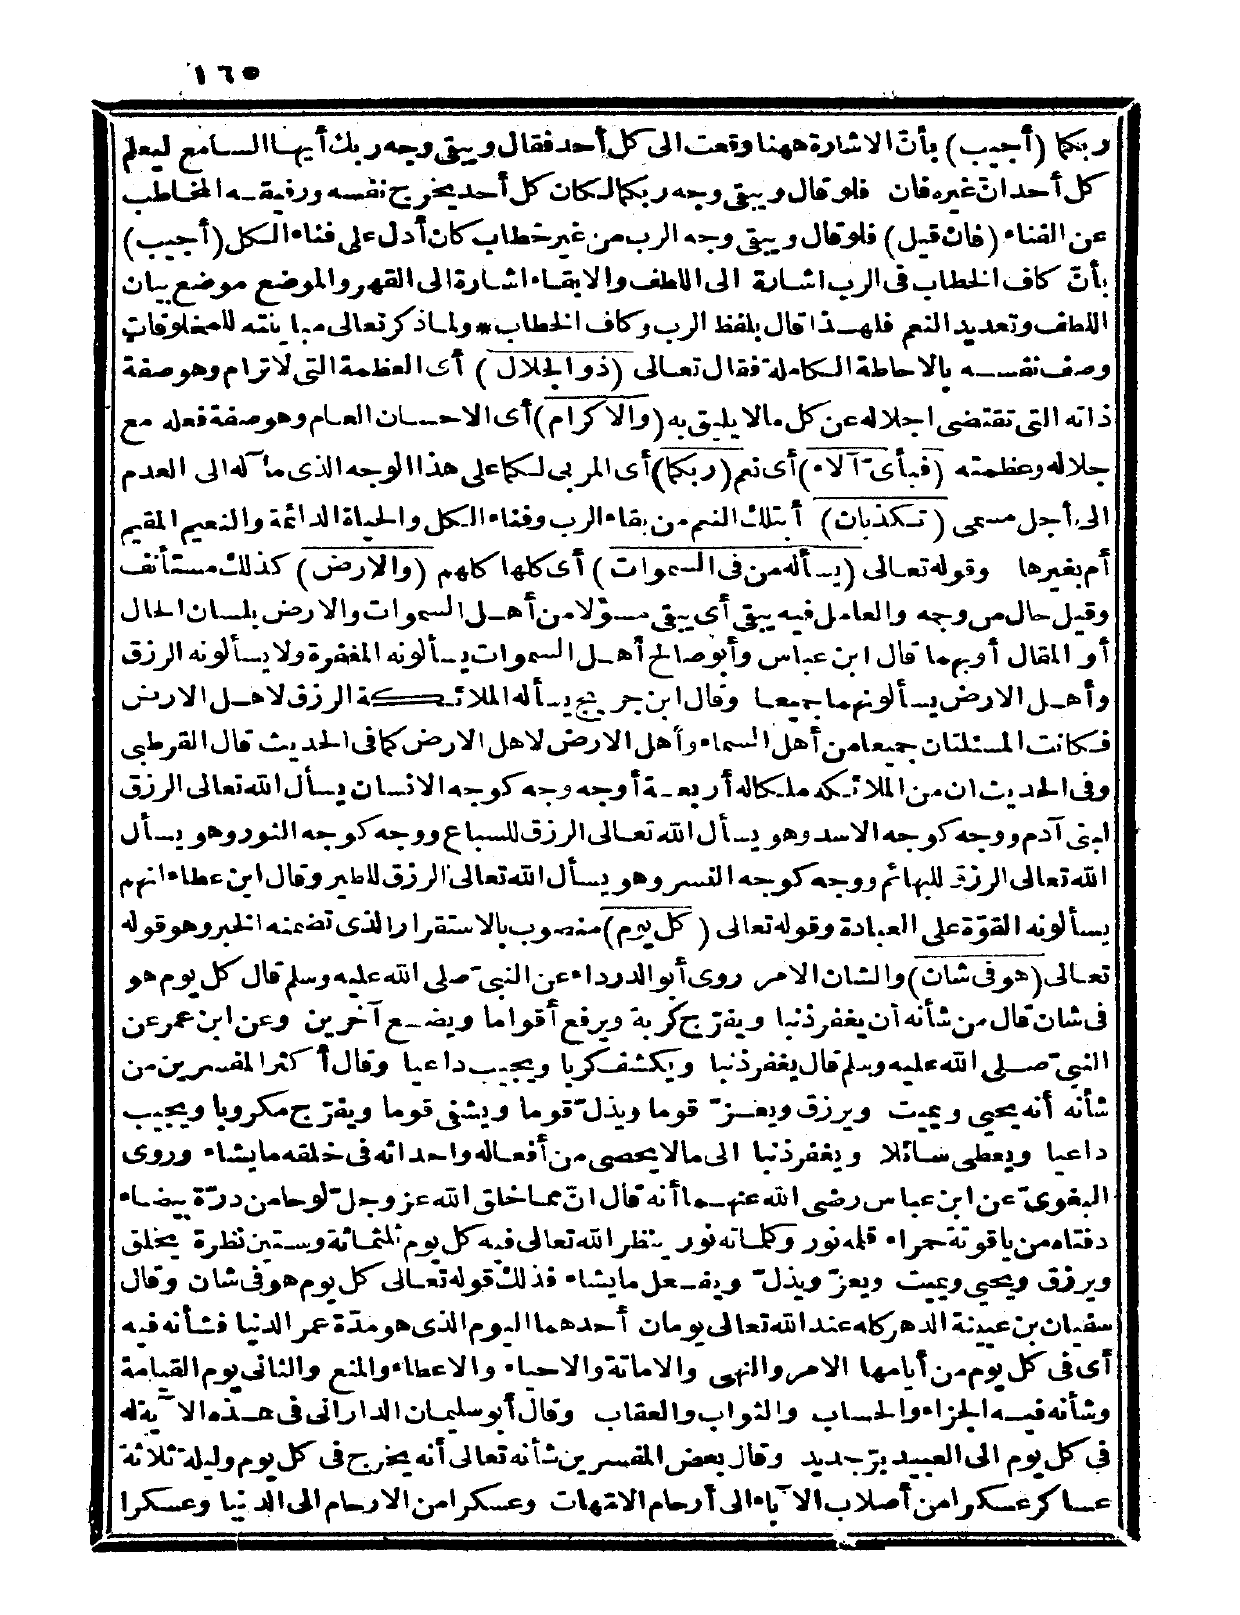 ١٦٥
ربكما (أجيب) بأنّ الاشارة ههنا وقعت الى كل أحد فقال ويبقى وجه ربك أيها السامع ليعلم
كل أحد انّ غيره فان فلو قال ويبقى وجه ربكما لكان كل أحد يخرج نفسه ورفيقه المخاطب
عن الفناء (فان قيل) فلو قال ويبقى وجه الرب من غير خطاب كان أدل على فناء الكل (أجيب)
بأنّ كاف الخطاب فى الرب اشارة الى اللطف والابقاء اشارة الى القهر والموضع موضع بيان
اللطف وتعديد النعم فلهذا قال بلفظ الرب وكاف الخطاب * ولما ذكر تعالى مباينته للمخلوقات
وصف نفسه بالاحاطة الكاملة فقال تعالى (ذو الجلال) أى العظمة التى لا ترام وهو صفة
ذاته التى تقتضى اجلاله عن كل مالا يليق به (والاكرام) أى الاحسان العام وهو صفة فعله مع
جلاله وعظمته (فبأىّ آلاء) أى نعم (ربكما) أى المربى لكما على هذا الوجه الذى مآله الى العدم
الى أجل مسمى (تكذبان) أبتلك النعم من بقاء الرب وفناء الكل والحياة الدائمة والنعيم المقيم
أم بغيرها وقوله تعالى (يسأله من فى السموات) أى كلها كلهم (والارض) كذلك مستأنف
وقيل حال من وجه والعامل فيه يبقى أى يبقى مسؤلا من أهل السموات والارض بلسان الحال
أو المقال أو بهما قال ابن عباس وأبو صالح أهل السموات يسألونه المغفرة ولا يسألونه الرزق
وأهل الارض يسألونهما جميعا وقال ابن جريج يسأله الملائكة الرزق لاهل الارض
فكانت المسئلتان جميعا من أهل السماء وأهل الارض لاهل الارض كما فى الحديث قال القرطبى
وفى الحديث ان من الملائكة ملكا له أربعة أوجه وجه كوجه الانسان يسأل الله تعالى الرزق
لبنى آدم ووجه كوجه الاسد وهو يسأل الله تعالى الرزق للسباع ووجه كوجه الثور وهو يسأل
الله تعالى الرزق للبهائم ووجه كوجه النسر وهو يسأل الله تعالى الرزق للطير وقال ابن عطاء انهم
يسألونه القوّة على العبادة وقوله تعالى (كل يوم) منصوب بالاستقرار الذى تضمنه الخبر وهو قوله
تعالى (هو فى شان) والشان الامر روى أبو الدرداء عن النبىّ صلى الله عليه وسلم قال كل يوم هو
فى شان قال من شأنه أن يغفر ذنبا ويفرّج كربة ويرفع أقواما ويضع آخرين وعن ابن عمر عن
النبىّ صلى الله عليه وسلم قال يغفر ذنبا ويكشف كربا ويجيب داعيا وقال أكثر المفسرين من
شأنه أنه يحيى ويميت ويرزق ويعزّ قوما ويذلّ قوما ويشفى قوما ويفرّج مكروبا ويجيب
داعيا ويعطى سائلا ويغفر ذنبا الى مالا يحصى من أفعاله واحداثه فى خلقه مايشاء وروى
البغوىّ عن ابن عباس رضى الله عنهما أنه قال انّ مما خلق الله عز وجلّ لوحا من درّة بيضاء
دفتاه من ياقوتة حمراء قلمه نور وكتابه نور ينظر الله تعالى فيه كل يوم ثلثمائة وستين نظرة يخلق
ويرزق ويحيى ويميت ويعزّ ويذلّ ويفعل مايشاء فذلك قوله تعالى كل يوم هو فى شان وقال
سفيان بن عيينة الدهر كله عند الله تعالى يومان أحدهما اليوم الذى هو مدّة عمر الدنيا فشأنه فيه
أى فى كل يوم من أيامها الامر والنهى والاماتة والاحياء والاعطاء والمنع والثانى يوم القيامة
وشأنه فيه الجزاء والحساب والثواب والعقاب وقال أبو سليمان الدارانى فى هذه الآية له
فى كل يوم الى العبيد برّ جديد وقال بعض المفسرين شأنه تعالى أنه يخرج فى كل يوم وليلة ثلاثة
عساكر عسكرا من أصلاب الآباء الى أرحام الامّهات وعسكرا من الارحام الى الدنيا وعسكرا